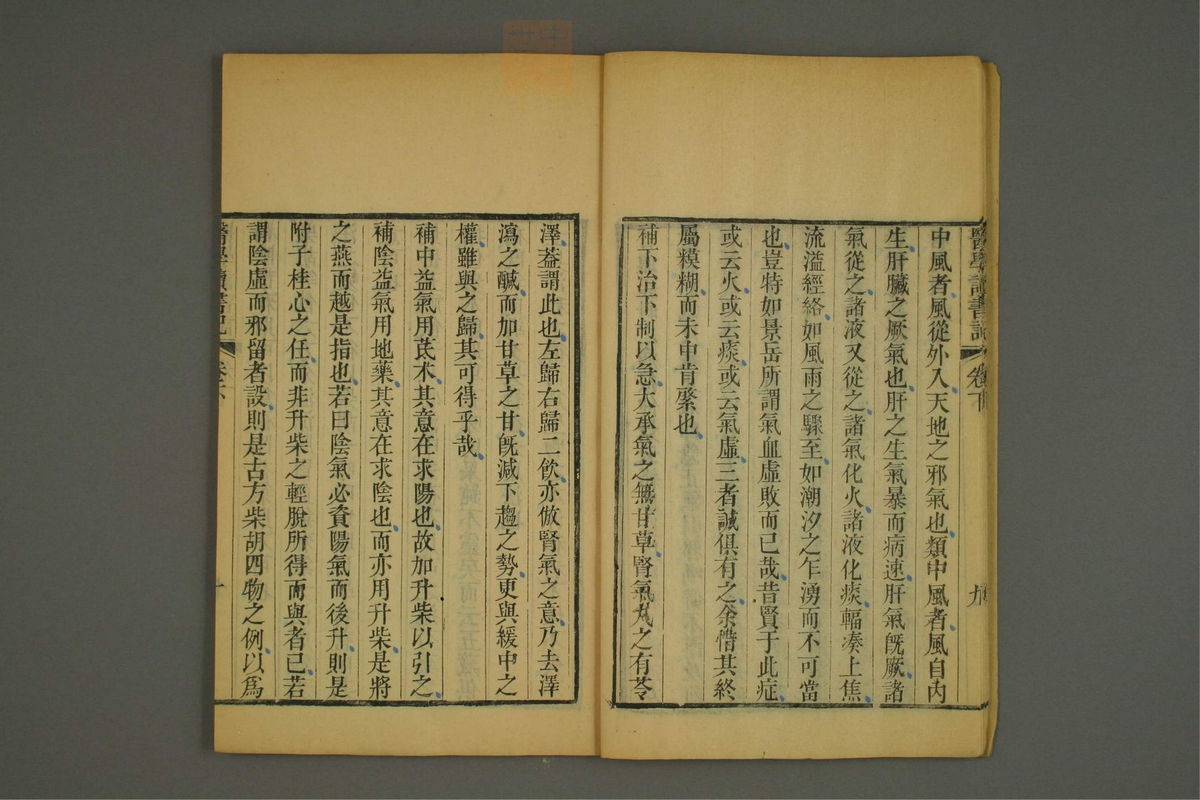 醫學讀書記
卷下
九
中風者風從外入天地之邪氣也類中風者風自內
生肝臟之厥氣也肝之生氣暴而病速肝氣旣厥諸
氣從之諸液又從之諸氣化火諸液化痰輻凑上焦
流溢經絡如風雨之驟至如潮汐之乍湧而不可當
也豈特如景岳所謂氣血虛敗而已哉昔賢于此症
或云火或云痰或云氣虛三者誠俱有之余惜其終
屬糢糊而未中肯綮也
補下治下制以急大承氣之無甘草腎氣丸之有苓
澤葢謂此也左歸右歸二飲亦倣腎氣之意乃去澤
瀉之鹹而加甘草之甘旣減下趨之勢更與緩中之
權雖與之歸其可得乎哉
補中益氣用芪朮其意在求陽也故加升柴以引之
補陰益氣用地藥其意在求陰也而亦用升柴是將
之燕而越是指也若曰陰氣必資陽氣而後升則是
附子桂心之任而非升柴之輕脫所得而與者已若
謂陰虛而邪留者設則是古方柴胡四物之例以爲
醫學讀書記
卷下